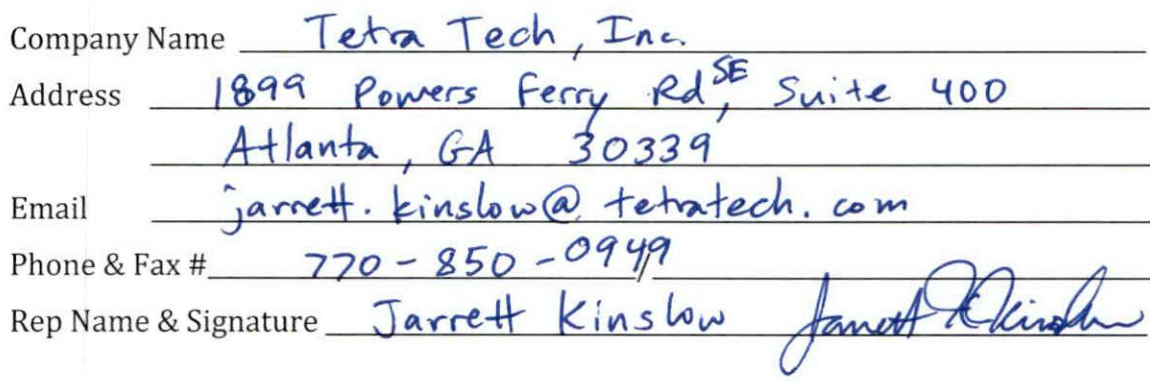 Company Name Tetra Tech, Inc.
Address 1899 Powers Ferry Rd SE, Suite 400
Atlanta, GA 30339
Email jarrett.kinslow@tetratech.com
Phone & Fax # 770-850-0949/
Rep Name & Signature Jarrett Kinslow Jarrett K Kinslow